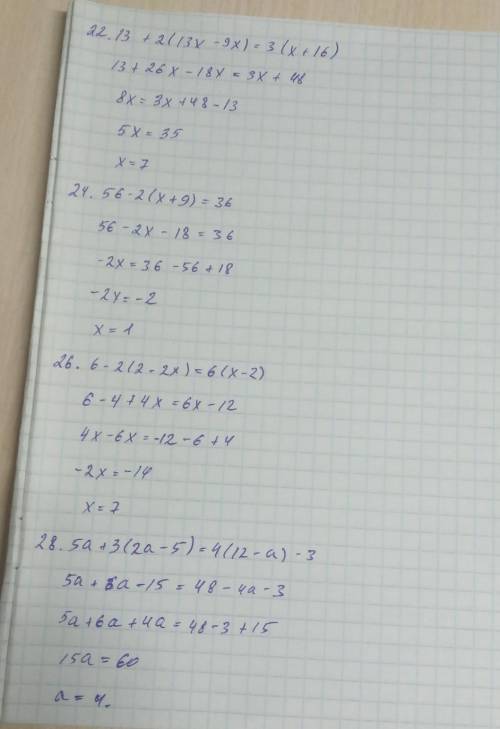 22. 13 + 2(13x - 9x) = 3(x + 16)
13 + 26x - 18x = 3x + 48
8x = 3x + 48 - 13
5x = 35
x = 7
24. 56 - 2(x + 9) = 36
56 - 2x - 18 = 36
-2x = 36 - 56 + 18
-2x = -2
x = 1
26. 6 - 2(2 - 2x) = 6(x - 2)
6 - 4 + 4x = 6x - 12
4x - 6x = -12 - 6 + 4
-2x = -14
x = 7
28. 5a + 3(2a - 5) = 4(12 - a) - 3
5a + 6a - 15 = 48 - 4a - 3
5a + 6a + 4a = 48 - 3 + 15
15a = 60
a = 4.